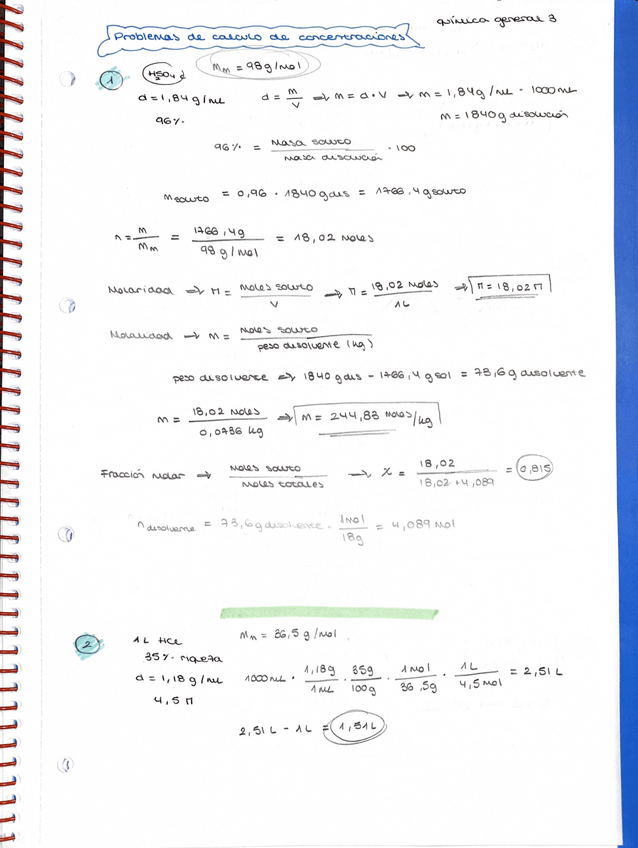 química general 3
Problemas de calculo de concentraciones
1 H2SO4 Mm = 98g/mol
d = 1,84 g/mL d = m/V → m = d · V → m = 1,84 g/mL · 1000 mL
96% m = 1840 g disolución
96% = Masa soluto / Masa disolución · 100
m soluto = 0,96 · 1840 g dis = 1766,4 g soluto
n = m/Mm = 1766,4g / 98 g/mol = 18,02 moles
Molaridad → M = moles soluto / V → M = 18,02 moles / 1L → M = 18,02 M
Molalidad → m = moles soluto / peso disolvente (kg)
peso disolvente → 1840 g dis - 1766,4 g sol = 73,6 g disolvente
m = 18,02 moles / 0,0736 kg → m = 244,83 moles/kg
Fracción molar → moles soluto / moles totales → X = 18,02 / 18,02 + 4,089 = 0,815
n disolvente = 73,6 g disolvente · 1 mol / 18g = 4,089 mol
2 1L HCl Mm = 36,5 g/mol
35% riqueza
d = 1,18 g/mL 1000 mL · 1,18g / 1 mL · 35g / 100g · 1 mol / 36,5g · 1L / 4,5 mol = 2,51 L
4,5 M
2,51 L - 1 L = 1,51 L